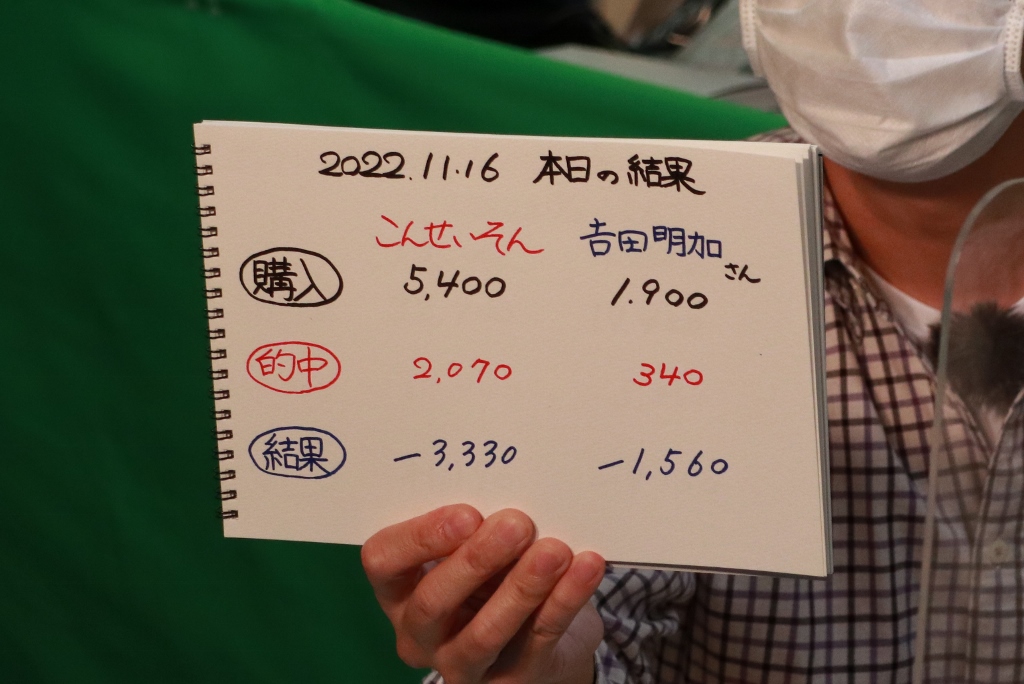 2022.11.16 本日の結果
こんせいそん 𠮷田明加さん
購入 5,400 1.900
的中 2,070 340
結果 -3,330 -1,560